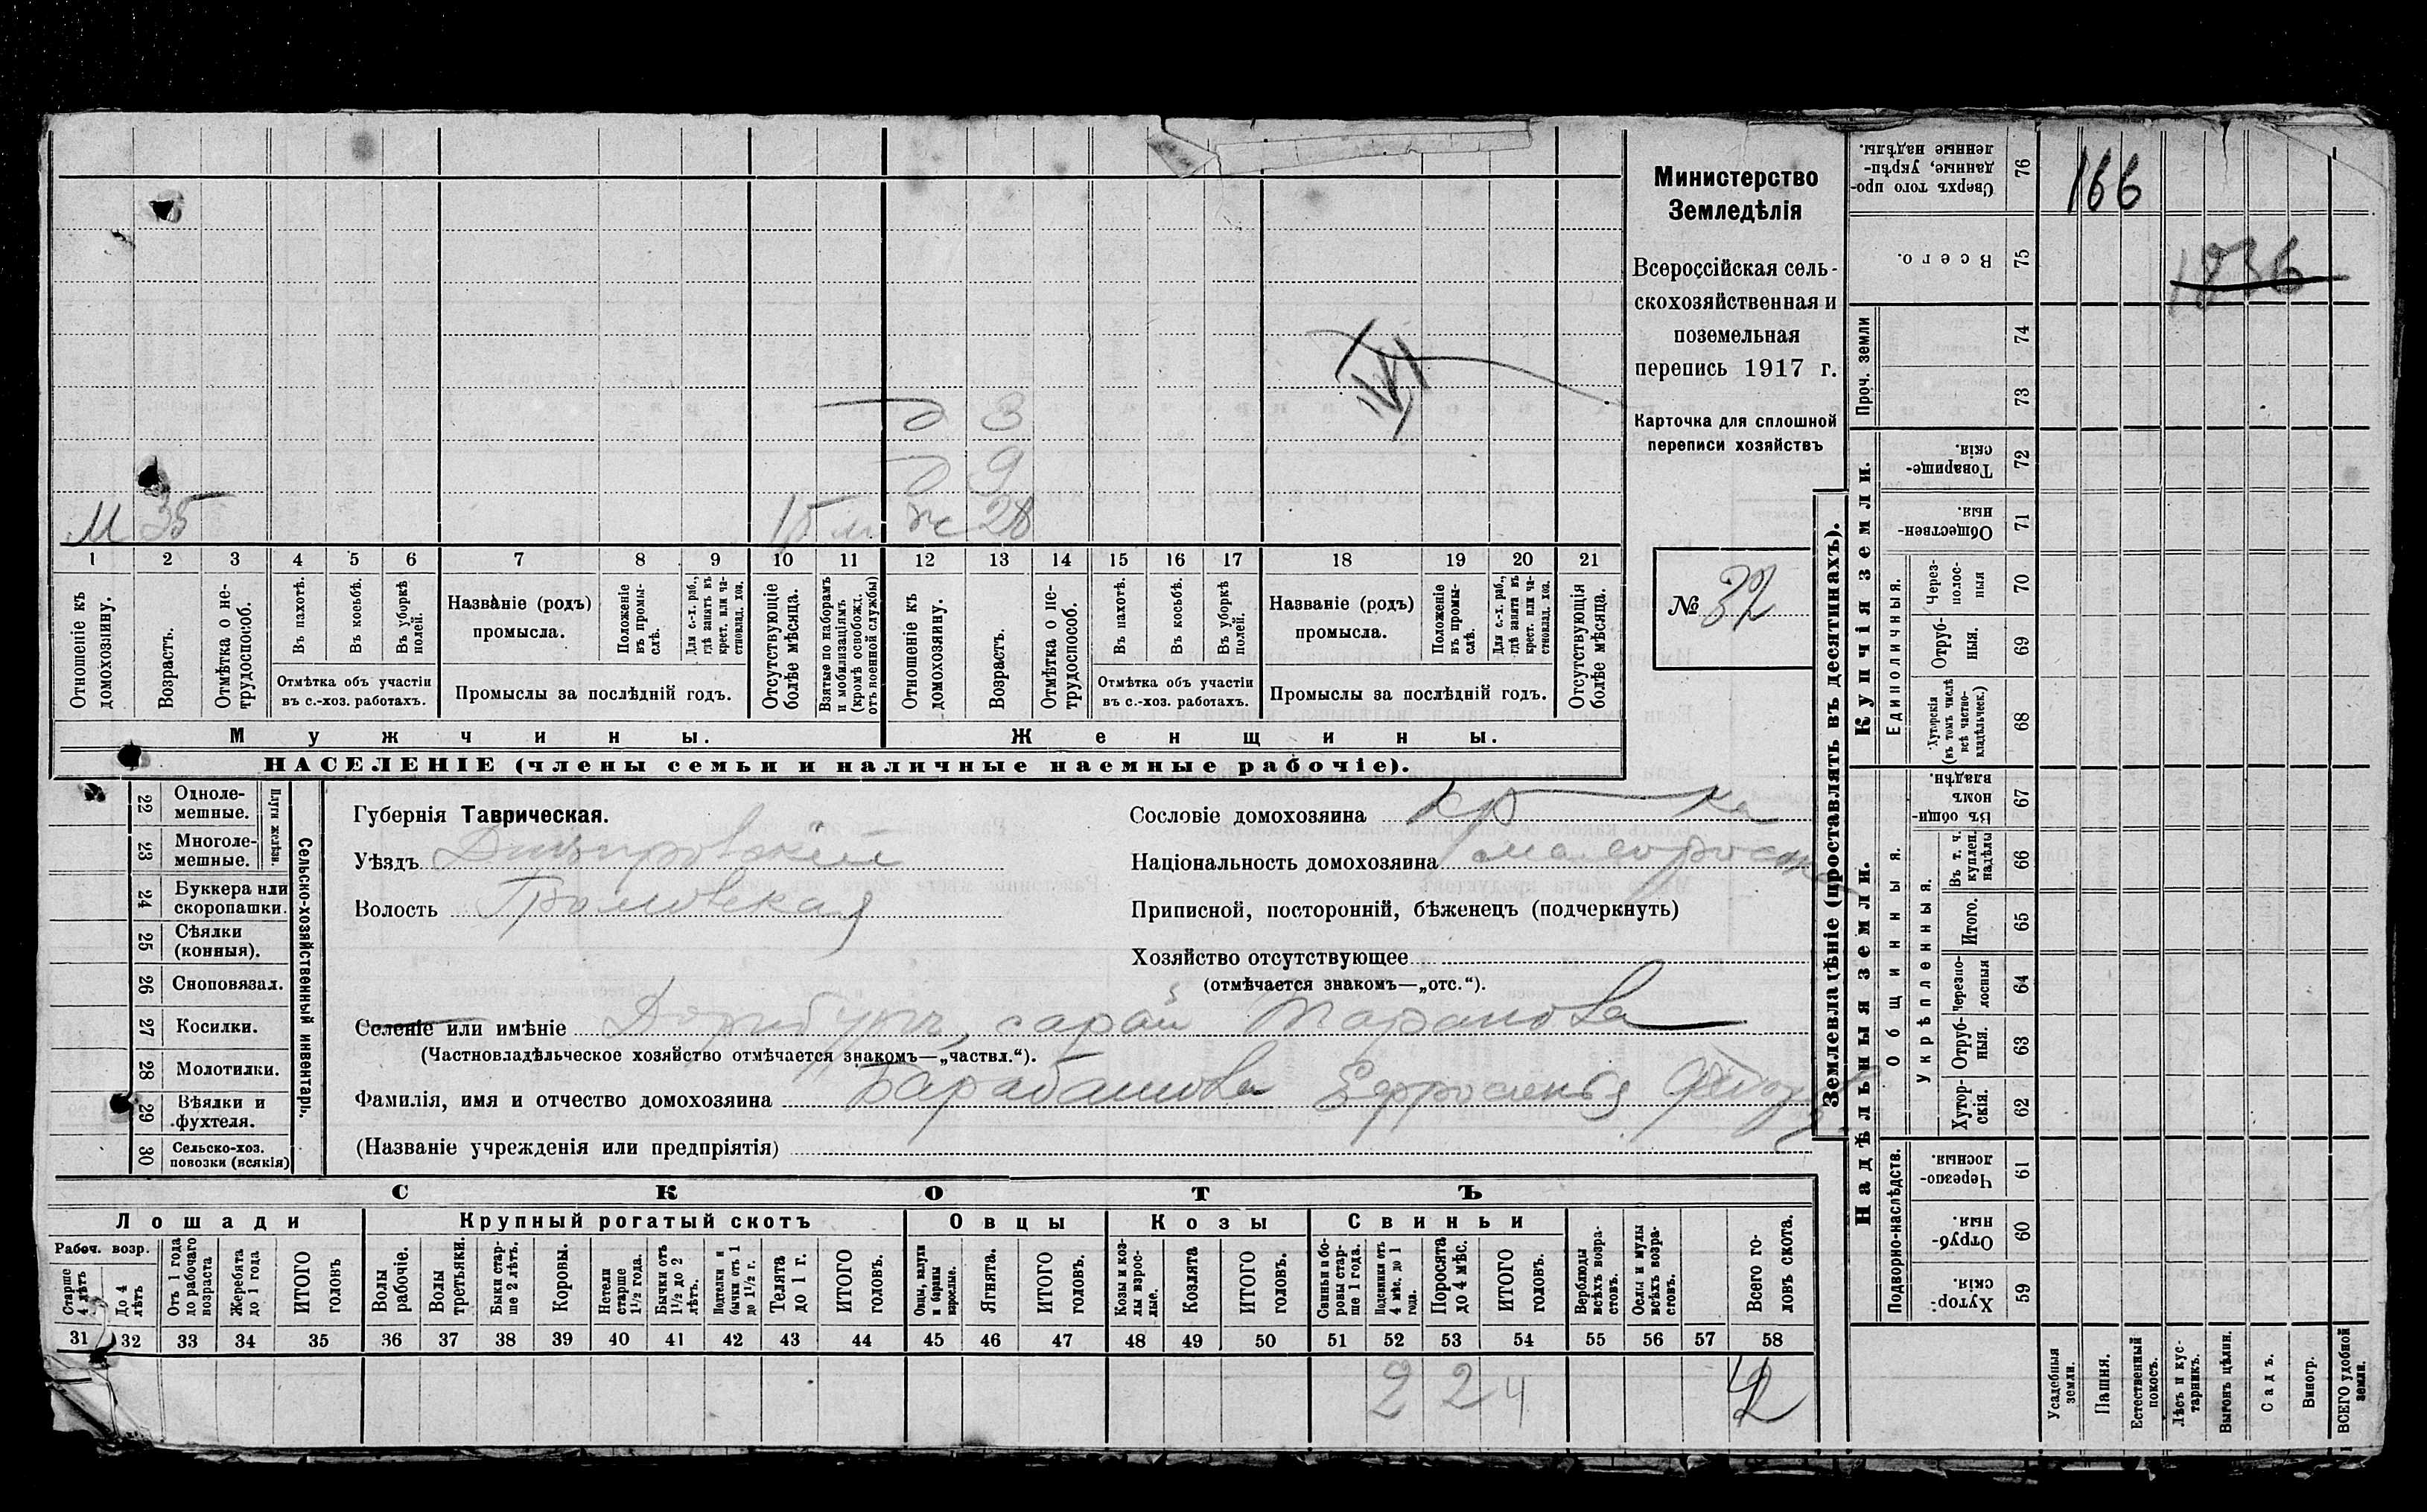 Министерство
Земледѣлія
Всероссійская сель-
скохозяйственная и
поземельная
перепись 1917 г.
Карточка для сплошной
переписи хозяйствъ
№ 32
д 3
д 9
М 35 ж 28
1 2 3 4 5 6 7 8 9 10 11 12 13 14 15 16 17 18 19 20 21
Отношеніе къ домохозяину.
Возрастъ.
Отмѣтка о не-трудоспособ.
Въ пахотѣ.
Въ косьбѣ.
Въ уборкѣ полей.
Отмѣтка объ участіи
въ с.-хоз. работахъ.
Названіе (родъ)
промысла.
Положеніе въ промы-слѣ.
Для с.-х. раб., гдѣ занятъ въ крест. или ча-стновлад. хоз.
Промыслы за послѣдній годъ.
Отсутствующіе болѣе мѣсяца.
Взятые по наборамъ и мобилизаціямъ (кромѣ освобожд. отъ военной службы)
Отношеніе къ домохозяину.
Возрастъ.
Отмѣтка о не-трудоспособ.
Въ пахотѣ.
Въ косьбѣ.
Въ уборкѣ полей.
Отмѣтка объ участіи
въ с.-хоз. работахъ.
Названіе (родъ)
промысла.
Положеніе въ промы-слѣ.
Для с.-х. раб., гдѣ занята въ крест. или ча-стновлад. хоз.
Промыслы за послѣдній годъ.
Отсутствующія болѣе мѣсяца.
Мужчины.
Женщины.
НАСЕЛЕНІЕ (члены семьи и наличные наемные рабочіе).
Сельско-хозяйственный инвентарь.
Плуги желѣзн.
22 Одноле-мешные.
23 Многоле-мешные.
24 Буккера или скоропашки.
25 Сѣялки (конныя).
26 Сноповязал.
27 Косилки.
28 Молотилки.
29 Вѣялки и фухтеля.
30 Сельско-хоз. повозки (всякія)
Губернія Таврическая.
Уѣздъ Днѣпровскій
Волость Громовская
Сословіе домохозяина кр-ка
Національность домохозяина малоросс
Приписной, посторонній, бѣженецъ (подчеркнуть)
Хозяйство отсутствующее
(отмѣчается знакомъ—„отс.“).
Селеніе или имѣніе сарай Таранова
(Частновладѣльческое хозяйство отмѣчается знакомъ—„частвл.“).
Фамилія, имя и отчество домохозяина Барабашова Ефросинья
(Названіе учрежденія или предпріятія)
СКОТЪ
Лошади
Крупный рогатый скотъ
Овцы
Козы
Свиньи
Рабоч. возр.
Старше 4 лѣтъ
До 4 лѣтъ
Отъ 1 года до рабочаго возраста
Жеребята до 1 года
ИТОГО головъ
Волы рабочіе.
Волы третьяки.
Быки стар-ше 2 лѣтъ.
Коровы.
Нетели старше 1½ года.
Бычки отъ 1½ до 2 лѣтъ.
Подтелки и бычки отъ 1 до 1½ г.
Телята до 1 г.
ИТОГО головъ.
Овцы, валухи и бараны взрослые.
Ягнята.
ИТОГО головъ.
Козы и коз-лы взрос-лые.
Козлята
ИТОГО головъ.
Свиньи и бо-ровы стар-ше 1 года.
Подсвинки отъ 4 мѣс. до 1 года.
Поросята до 4 мѣс.
ИТОГО головъ.
Верблюды всѣхъ возра-стовъ.
Ослы и мулы всѣхъ возра-стовъ.
Всего го-ловъ скота.
31 32 33 34 35 36 37 38 39 40 41 42 43 44 45 46 47 48 49 50 51 52 53 54 55 56 57 58
2 2 4
Землевладѣніе (проставлять въ десятинахъ).
Надѣльныя земли.
Купчія земли.
Проч. земли
Подворно-наслѣдств.
Общинныя.
Укрѣпленныя.
Единоличныя.
Сверхъ того про-данные, укрѣп-ленные надѣлы. 76
166
Всего. 75
1836
74
73
Товарище-скія. 72
Обществен-ныя. 71
Через-полос-ныя 70
Отруб-ныя. 69
Хуторскія (въ томъ числѣ всѣ частно-владѣльческ.) 68
Въ общин-номъ владѣн. 67
Въ т. ч. куплен. надѣлы 66
Итого. 65
Черезпо-лосныя 64
Отруб-ныя. 63
Хутор-скія. 62
Черезпо-лосныя. 61
Отруб-ныя. 60
Хутор-скія. 59
Усадебныя земли.
Пашня.
Естественный покосъ.
Лѣсъ и кус-тарникъ.
Выгонъ цѣлин.
Садъ.
Виногр.
ВСЕГО удобной земли.